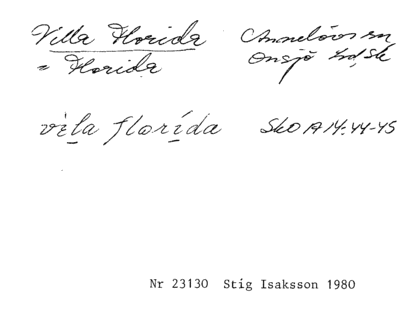 Villa Florida Annelövs sn
= Florida Onsjö hd, Sk
vìla florída SkO A 14:44-45
Nr 23130 Stig Isaksson 1980